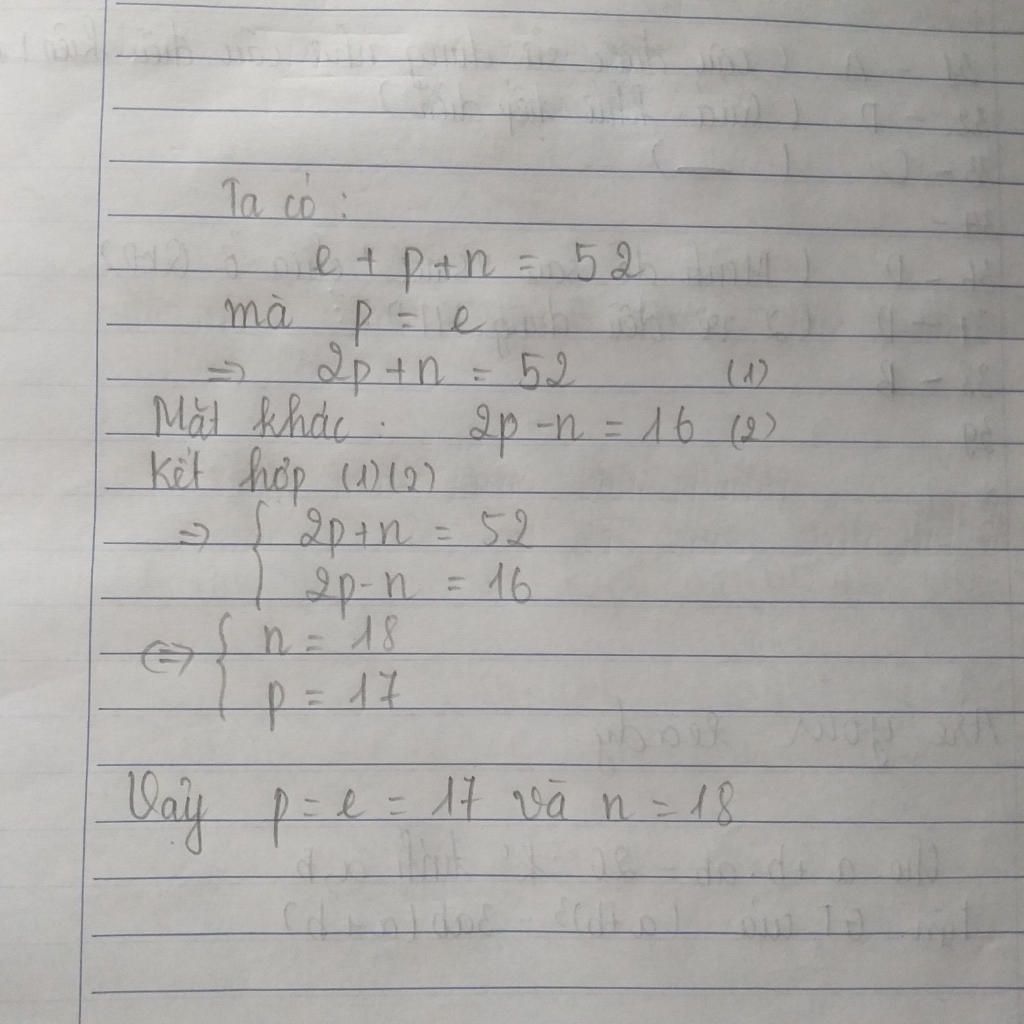 Ta có :
e + p + n = 52
mà p = e
=> 2p + n = 52 (1)
Mặt khác : 2p - n = 16 (2)
Kết hợp (1)(2)
=> { 2p + n = 52
2p - n = 16
<=> { n = 18
p = 17
Vậy p = e = 17 và n = 18